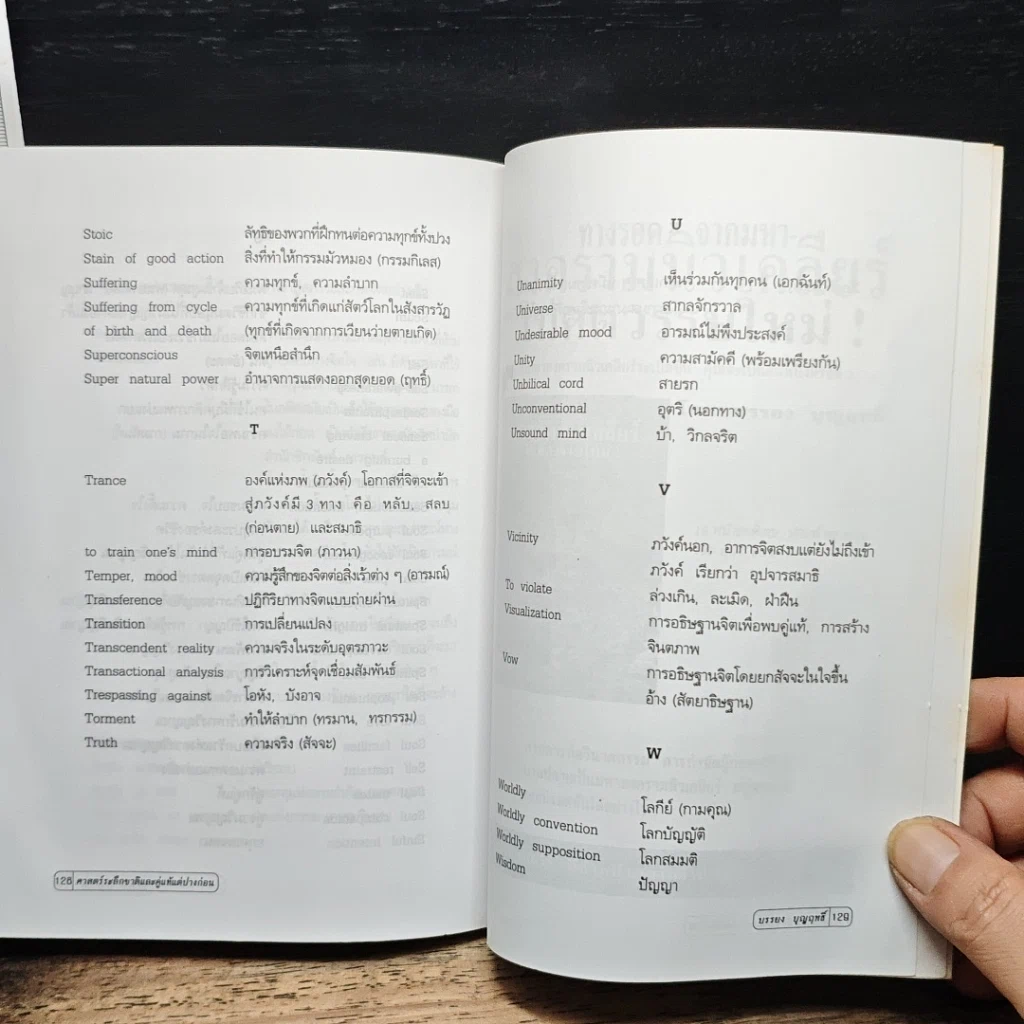 Stoic ลัทธิของพวกที่ฝึกทนต่อความทุกข์ทั้งปวง
Stain of good action สิ่งที่ทำให้กรรมมัวหมอง (กรรมกิเลส)
Suffering ความทุกข์, ความลำบาก
Suffering from cycle ความทุกข์ที่เกิดแก่สัตว์โลกในสังสารวัฏ
of birth and death (ทุกข์ที่เกิดจากการเวียนว่ายตายเกิด)
Superconscious จิตเหนือสำนึก
Super natural power อำนาจการแสดงออกสุดยอด (ฤทธิ์)
T
Trance องค์แห่งภพ (ภวังค์) โอกาสที่จิตจะเข้า
สู่ภวังค์มี 3 ทาง คือ หลับ, สลบ
(ก่อนตาย) และสมาธิ
to train one's mind การอบรมจิต (ภาวนา)
Temper, mood ความรู้สึกของจิตต่อสิ่งเร้าต่าง ๆ (อารมณ์)
Transference ปฏิกิริยาทางจิตแบบถ่ายผ่าน
Transition การเปลี่ยนแปลง
Transcendent reality ความจริงในระดับอุตรภาวะ
Transactional analysis การวิเคราะห์จุดเชื่อมสัมพันธ์
Trespassing against โอหัง, บังอาจ
Torment ทำให้ลำบาก (ทรมาน, ทรกรรม)
Truth ความจริง (สัจจะ)
128 ศาสตร์ระลึกชาติและคู่แท้แต่ปางก่อน
U
Unanimity เห็นร่วมกันทุกคน (เอกฉันท์)
Universe สากลจักรวาล
Undesirable mood อารมณ์ไม่พึงประสงค์
Unity ความสามัคคี (พร้อมเพรียงกัน)
Unbilical cord สายรก
Unconventional อุตริ (นอกทาง)
Unsound mind บ้า, วิกลจริต
V
Vicinity ภวังค์นอก, อาการจิตสงบแต่ยังไม่ถึงเข้า
ภวังค์ เรียกว่า อุปจารสมาธิ
To violate ล่วงเกิน, ละเมิด, ฝ่าฝืน
Visualization การอธิษฐานจิตเพื่อพบคู่แท้, การสร้าง
จินตภาพ
Vow การอธิษฐานจิตโดยยกสัจจะในใจขึ้น
อ้าง (สัตยาธิษฐาน)
W
Worldly โลกีย์ (กามคุณ)
Worldly convention โลกบัญญัติ
Worldly supposition โลกสมมติ
Wisdom ปัญญา
บรรยง บุญฤทธิ์ 129